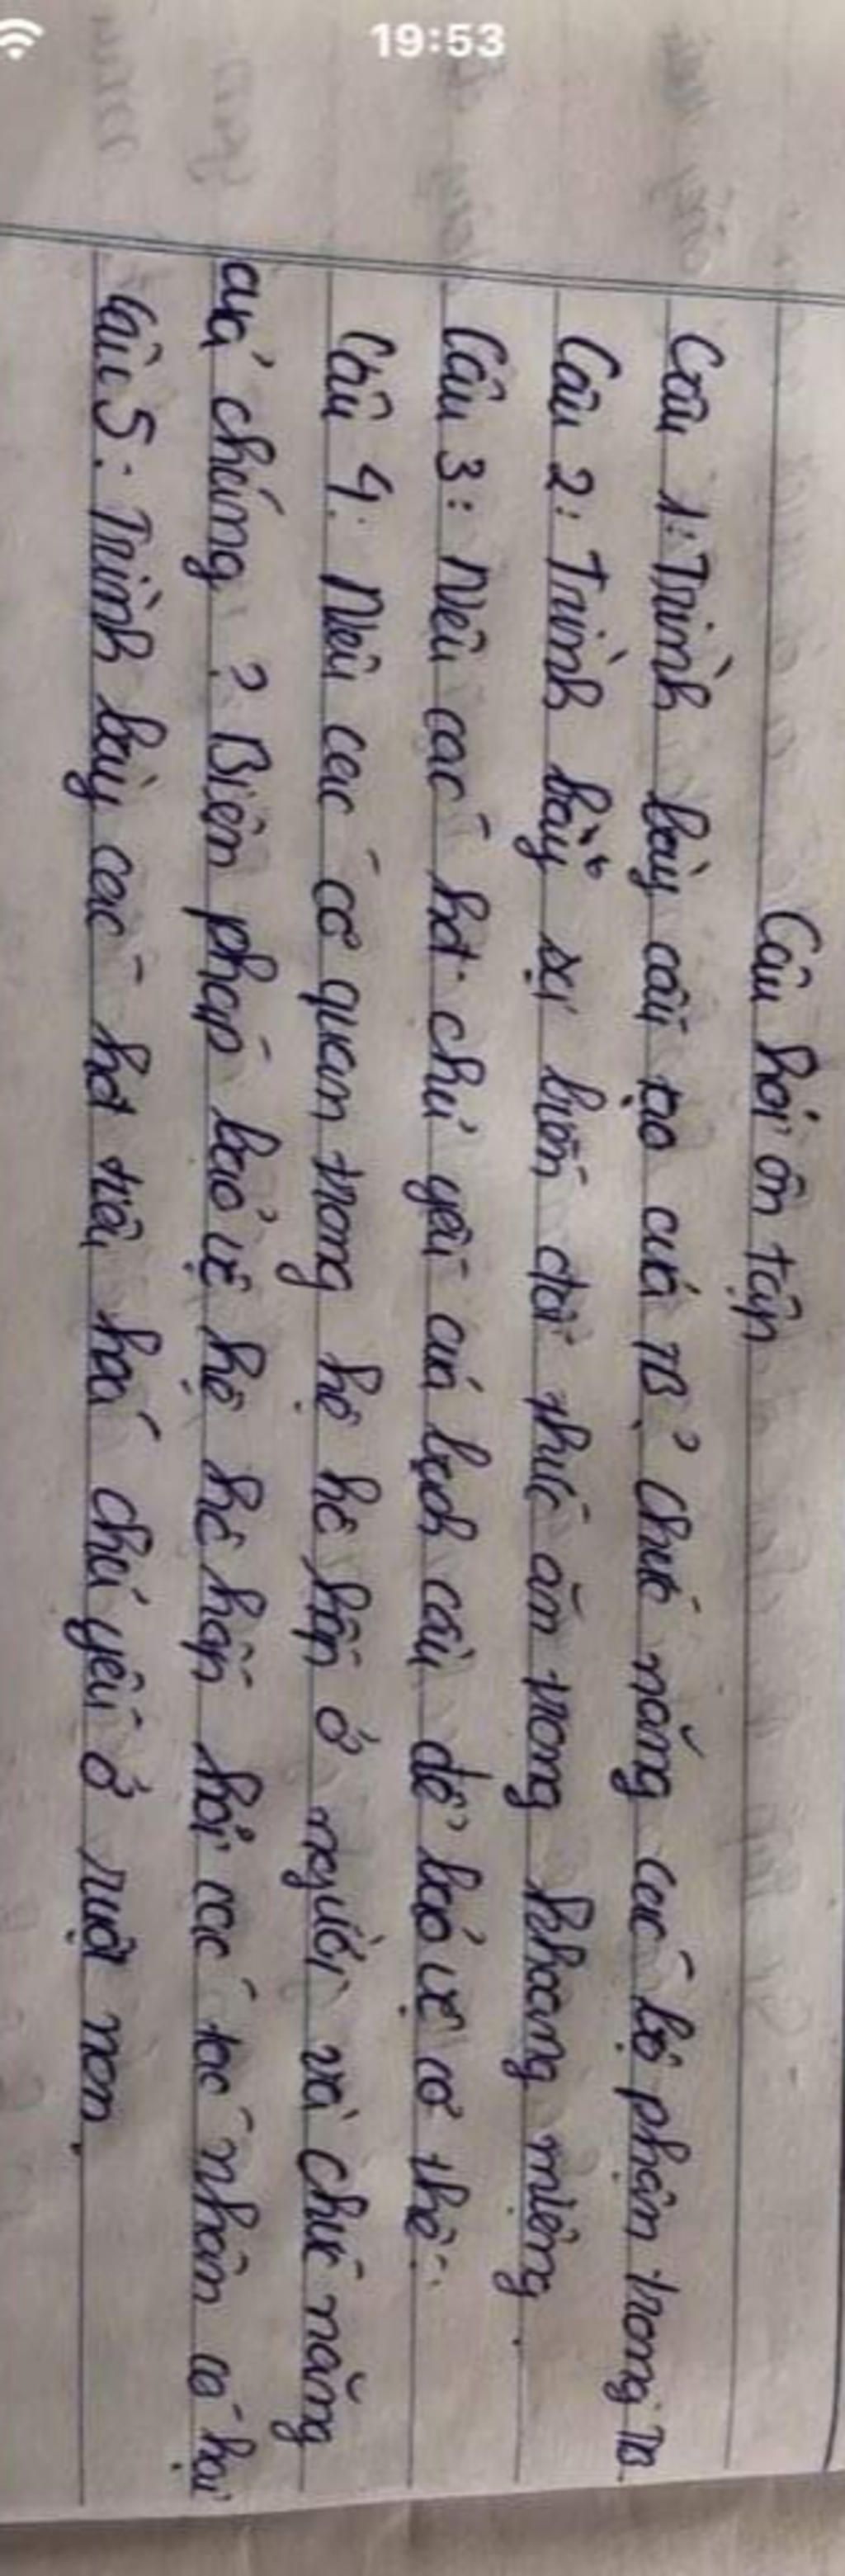 19:53
Câu hỏi ôn tập
Câu 1: Trình bày cấu tạo của TB? chức năng các bộ phận trong TB.
Câu 2: Trình bày sự biến đổi thức ăn trong khoang miệng.
Câu 3: Nêu các hđ chủ yếu của bạch cầu để bảo vệ cơ thể.
Câu 4: Nêu các cơ quan trong hệ hô hấp ở người và chức năng
của chúng? Biện pháp bảo vệ hệ hô hấp khỏi các tác nhân có hại
Câu 5: Trình bày các hđ tiêu hoá chủ yếu ở ruột non.